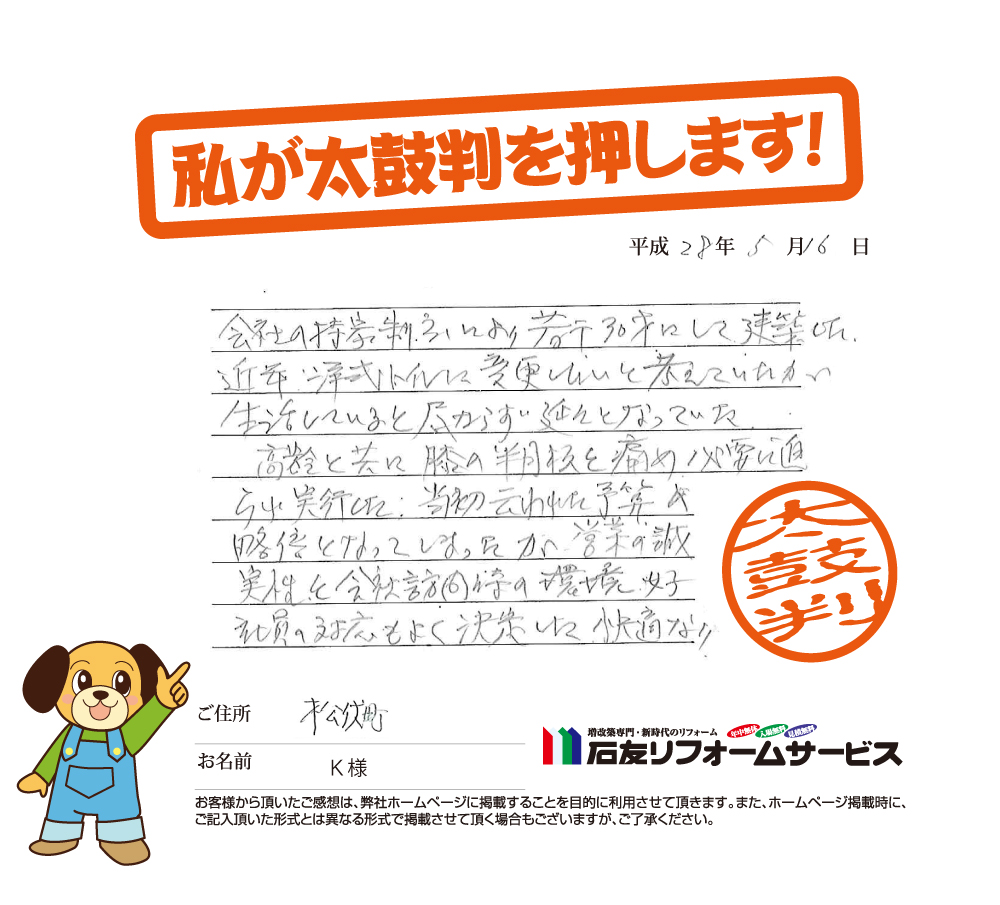 私が太鼓判を押します!
平成 28年 5月16日
会社の持家制 により若干30才にして建築した、
近年 洋式トイレに変更したいと考えていたが
生活していると 延々となっていた。
高齢と共に膝の半月板を痛め必要に迫
られ実行した。当初云われた予算
略倍となってしまったが 営業の誠
実性と会社訪問時の環境 女子
社員の対応もよく決定して快適なり
太鼓判
ご住所
お名前 K様
増改築専門・新時代のリフォーム 年中無休 入場無料 見積無料
石友リフォームサービス
お客様から頂いたご感想は、弊社ホームページに掲載することを目的に利用させて頂きます。また、ホームページ掲載時に、
ご記入頂いた形式とは異なる形式で掲載させて頂く場合もございますが、ご了承ください。